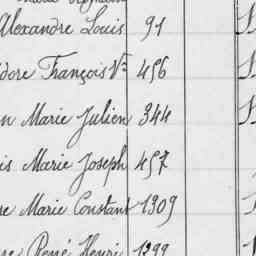 Alexandre Louis 91
François Vor 456
Marie Julien 344
Marie Joseph 457
Marie Constant 1309
René Henri 1299